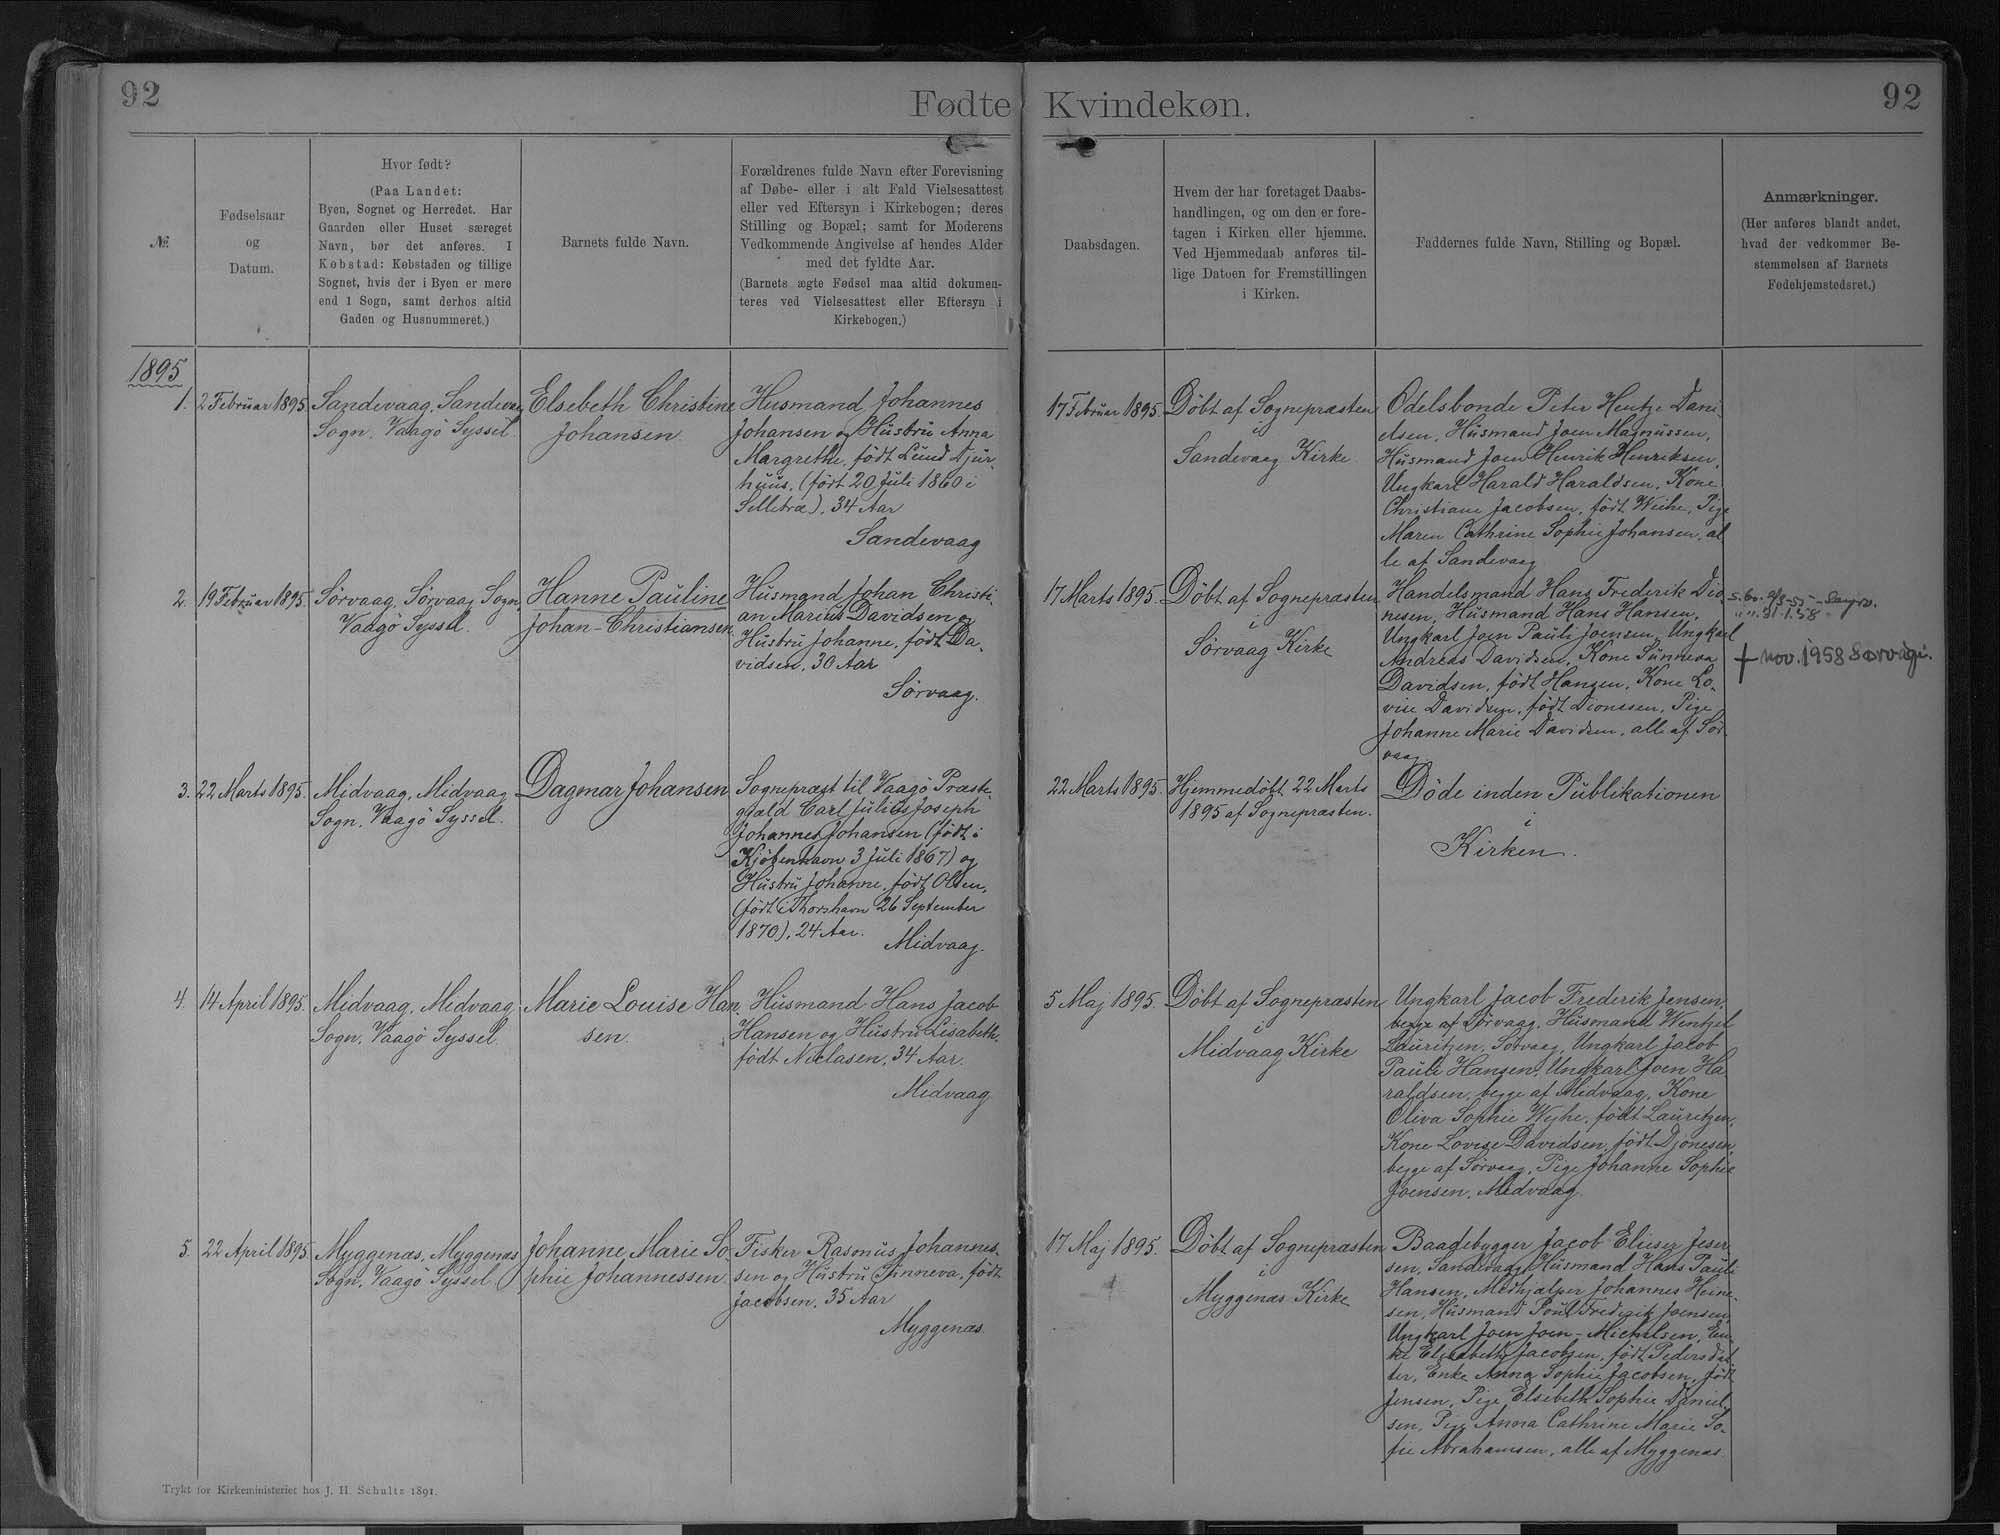 92
Fødte
Kvindekøn.
92
№
Fødselsaar
og
Datum.
Hvor født?
(Paa Landet:
Byen, Sognet og Herredet. Har
Gaarden eller Huset særeget
Navn, bør det anføres. I
Købstad: Købstaden og tillige
Sognet, hvis der i Byen er mere
end 1 Sogn, samt derhos altid
Gaden og Husnummeret.)
Barnets fulde Navn.
Forældrenes fulde Navn efter Forevisning
af Døbe- eller i alt Fald Vielsesattest
eller ved Eftersyn i Kirkebogen; deres
Stilling og Bopæl; samt for Moderens
Vedkommende Angivelse af hendes Alder
med det fyldte Aar.
(Barnets ægte Fødsel maa altid dokumen-
teres ved Vielsesattest eller Eftersyn i
Kirkebogen.)
Daabsdagen.
Hvem der har foretaget Daabs-
handlingen, og om den er fore-
tagen i Kirken eller hjemme.
Ved Hjemmedaab anføres til-
lige Datoen for Fremstillingen
i Kirken.
Faddernes fulde Navn, Stilling og Bopæl.
Anmærkninger.
(Her anføres blandt andet,
hvad der vedkommer Be-
stemmelsen af Barnets
Fødehjemstedsret.)
1895
1.
2 Februar 1895
Sandevaag, Sandevaag
Sogn, Vaagö Syssel.
Elsebeth Christine
Johansen
Husmand Johannes
Johansen og Hustru Anna
Margrethe, född Lund Djur-
huus, (født 20 Juli 1860 i
Selletræ), 34 Aar
Sandevaag
17 Februar 1895.
Döbt af Sognepræsten
i
Sandevaag Kirke
Odelsbonde Peter Hentze Dani-
elsen, Husmand Joen Magnussen,
Husmand Joen Henrik Henriksen,
Ungkarl Harald Haraldsen, Kone
Christiane Jacobsen, födt Weihe, Pige
Maren Cathrine Sophie Johansen, al
le af Sandevaag
2.
19 Februar 1895.
Sörvaag, Sörvaag Sogn,
Vaagö Syssel.
Hanne Pauline
Johan-Christiansen.
Husmand Johan Christi-
an Marius Davidsen og
Hustru Johanne, födt Da-
vidsen, 30 Aar
Sörvaag.
17 Marts 1895.
Döbt af Sognepræsten
i
Sörvaag Kirke
Handelsmand Hans Frederik Dio-
nesen, Husmand Hans Hansen,
Ungkarl Joen Pauli Joensen, Ungkarl
Andreas Davidsen, Kone Sunneva
Davidsen, födt Hansen, Kone Lo-
vise Davidsen, födt Dionesen, Pige
Johanne Marie Davidsen, alle af Sör-
vaag
+ nov. 1958 Sørvági.
3.
22 Marts 1895.
Midvaag, Midvaag
Sogn, Vaagö Syssel.
Dagmar Johansen
Sognepræst til Vaagö Præste-
gjæld Carl Julius Joseph
Johannes Johansen (födt i
Kjöbenhavn 3 Juli 1867) og
Hustru Johanne, födt Olsen,
(födt i Thorshavn 26 September
1870), 24 Aar.
Midvaag.
22 Marts 1895.
Hjemmedöbt 22 Marts
1895 af Sognepræsten.
Döde inden Publikationen
i
Kirken.
4.
14 April 1895.
Midvaag, Midvaag
Sogn, Vaagö Syssel.
Marie Louise Han-
sen.
Husmand Hans Jacob
Hansen og Hustru Lisabeth,
födt Niclasen, 34 Aar.
Midvaag
5 Maj 1895.
Döbt af Sognepræsten
i
Midvaag Kirke
Ungkarl Jacob Frederik Jensen,
begge af Sörvaag, Husmand Wentzel
Lauritzen, Sörvaag, Ungkarl Jacob
Pauli Hansen, Ungkarl Joen Ha-
raldsen, begge af Midvaag, Kone
Oliva Sophie Wejhe, födt Lauritzen,
Kone Lovise Davidsen, födt Djonesen
begge af Sörvaag, Pige Johanne Sophie
Joensen, Midvaag.
5.
22 April 1895
Myggenæs, Myggenæs
Sogn, Vaagö Syssel
Johanne Marie So-
phie Johannessen
Fisker Rasmus Johannes-
sen og Hustru Sinneva, födt
Jacobsen, 35 Aar
Myggenæs.
17 Maj 1895.
Döbt af Sognepræsten
i
Myggenæs Kirke
Baadebygger Jacob Elieser Jeser-
sen, Sandevaag, Husmand Hans Pauli
Hansen, Medhjælper Johannes Heine-
sen, Husmand Poul Frederik Joensen,
Ungkarl Joen Joen-Michelsen, En-
ke Elisabeth Jacobsen, födt Pedersdat-
ter, Enke Anna Sophie Jacobsen, födt
Jensen, Pige Elsebeth Sophie Daniel-
sen, Pige Anna Cathrine Marie So-
fie Abrahamsen, alle af Myggenæs.
Trykt for Kirkeministeriet hos J. H. Schultz 1891.